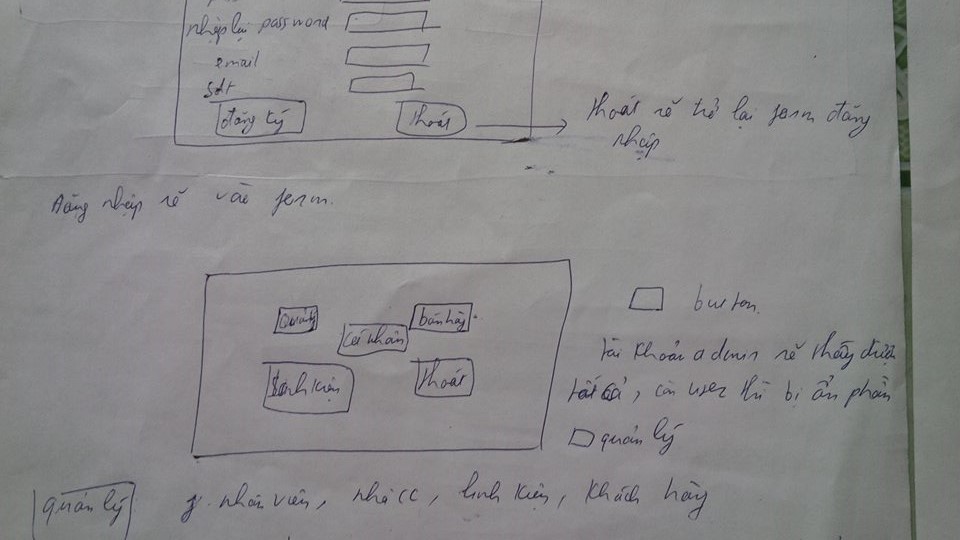 nhập lại password
email
sdt
đăng ký
thoát
thoát sẽ trở lại form đăng
nhập
Đăng nhập sẽ vào form.
Quản lý
bán hàng
cá nhân
linh kiện
thoát
button.
tài khoản admin sẽ thấy được
tất cả, còn user thì bị ẩn phần
quản lý
quản lý
nhân viên, nhà CC, linh kiện, khách hàng